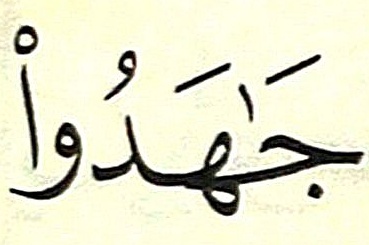 جَٰهَدُوا۟